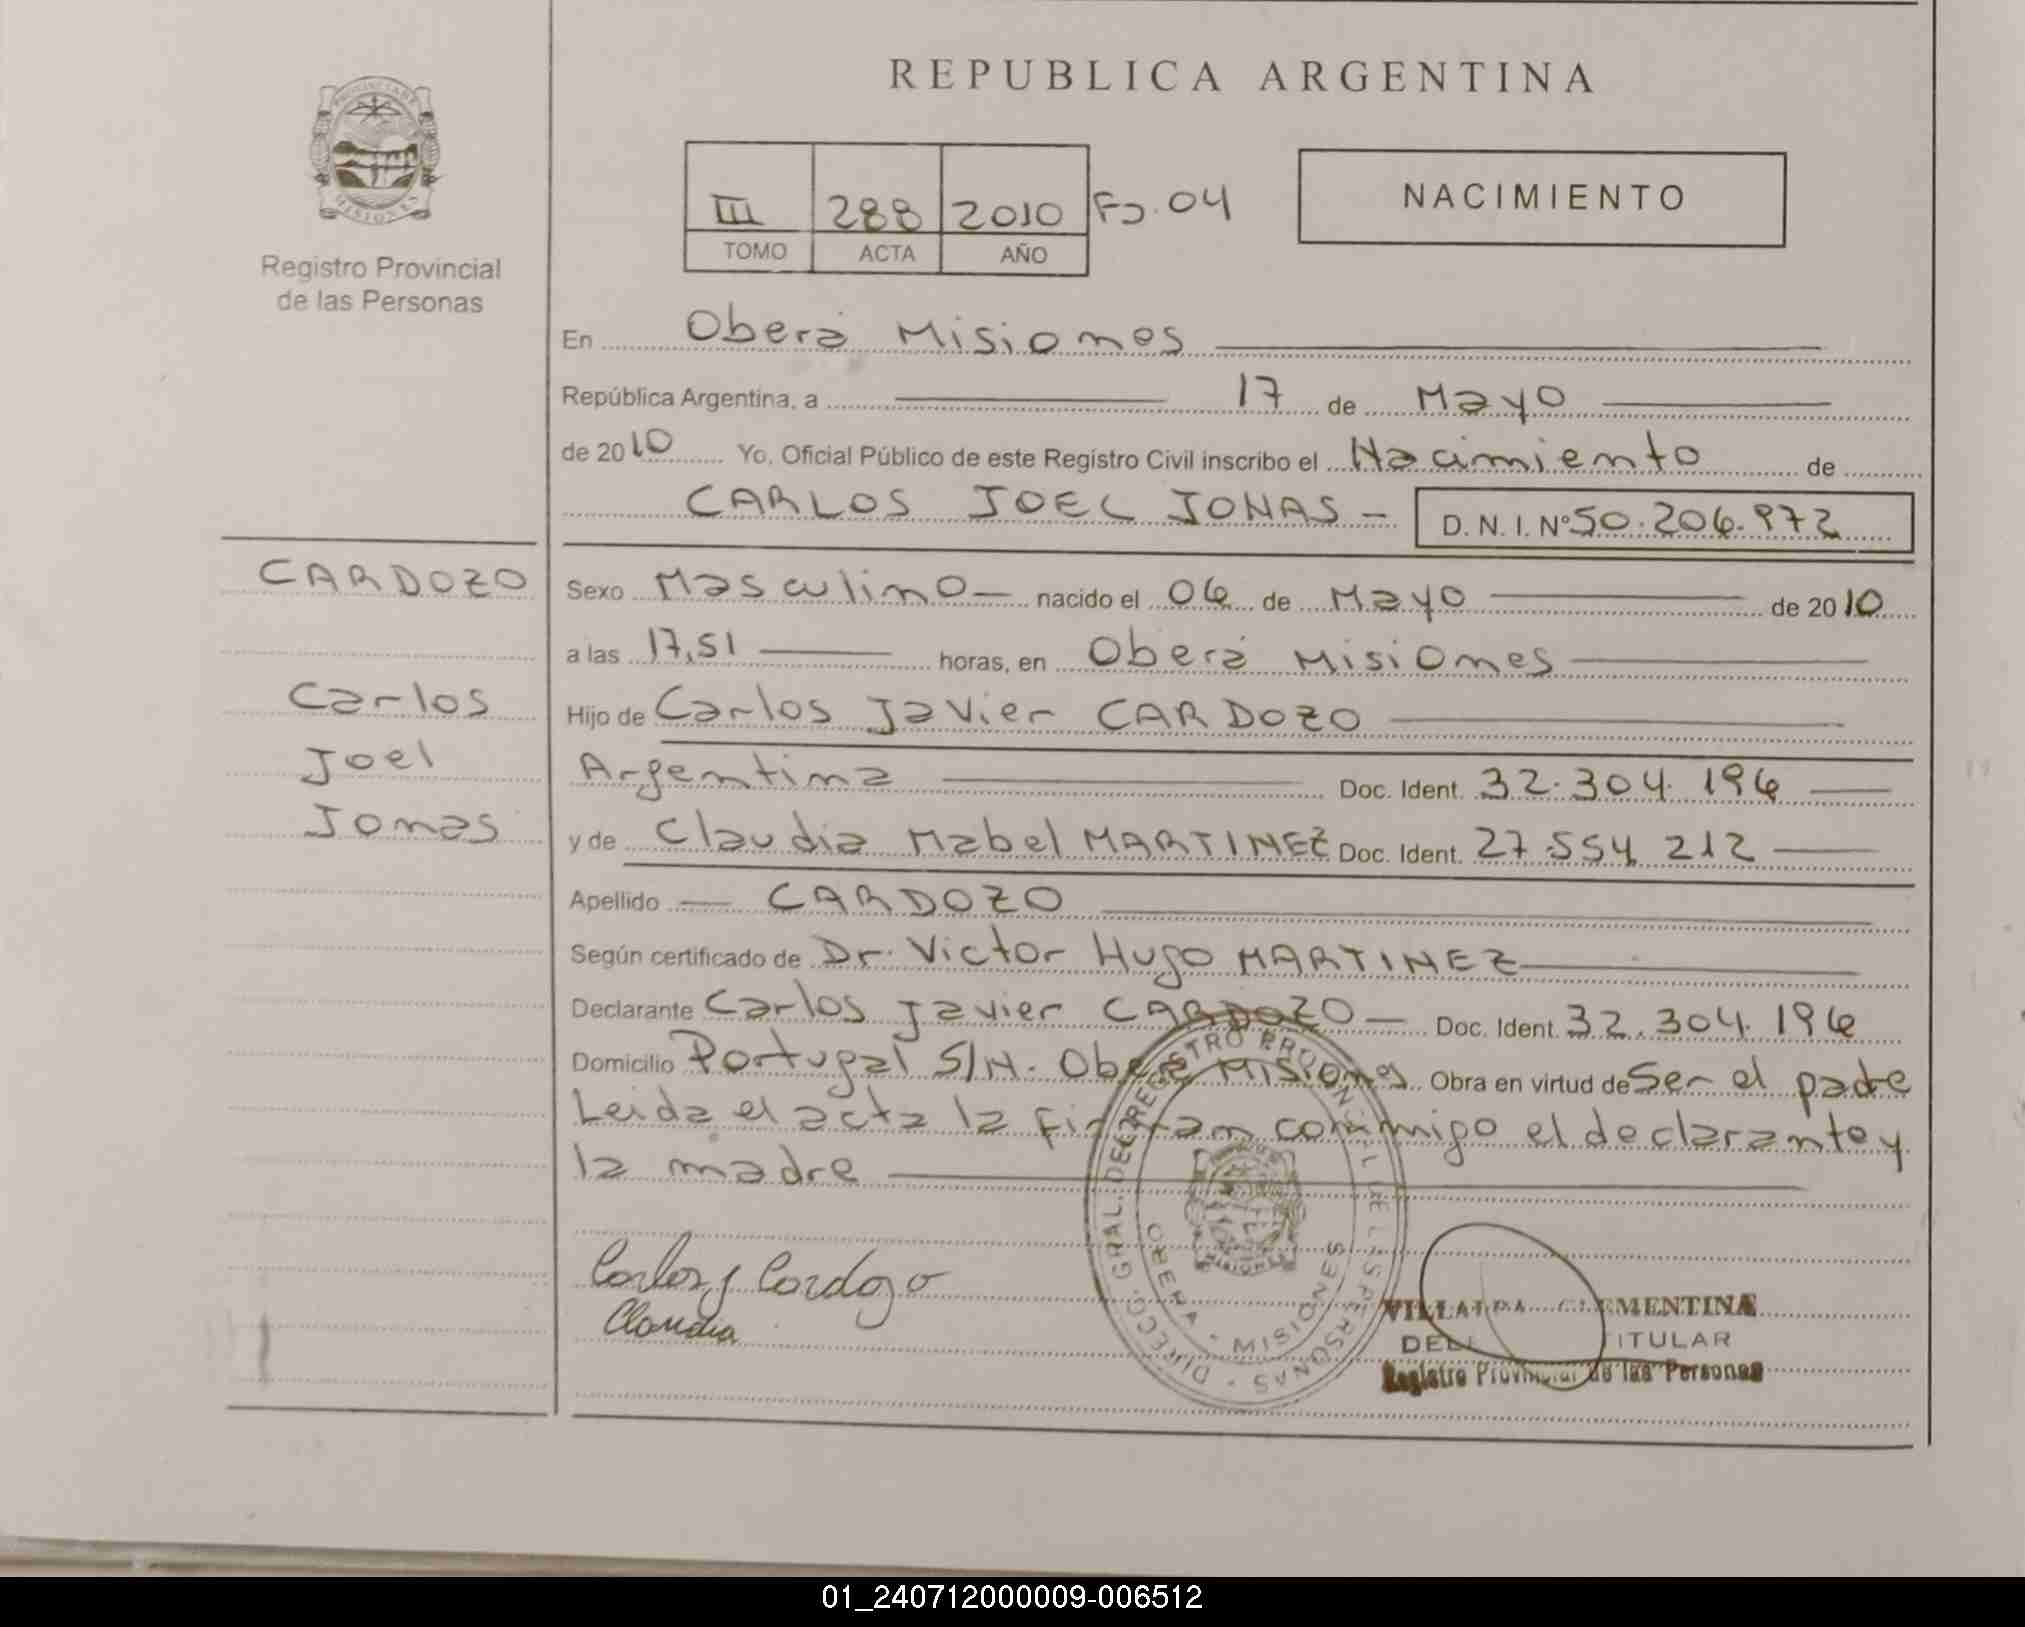 REPUBLICA ARGENTINA
PROVINCIA DE
MISIONES
Registro Provincial
de las Personas
III 288 2010 Fo. 04
TOMO ACTA AÑO
NACIMIENTO
En Oberá Misiones
República Argentina, a 17 de Mayo
de 2010 Yo, Oficial Público de este Registro Civil inscribo el Nacimiento de
CARLOS JOEL JONAS - D. N. I. Nº 50.206.972
CARDOZO
Carlos
Joel
Jonas
Sexo Masculino nacido el 06 de Mayo de 2010
a las 17,51 horas, en Oberá Misiones
Hijo de Carlos Javier CARDOZO
Argentina Doc. Ident. 32.304.196
y de Claudia Mabel MARTINEZ Doc. Ident. 27.554.212
Apellido CARDOZO
Según certificado de Dr. Victor Hugo MARTINEZ
Declarante Carlos Javier CARDOZO Doc. Ident. 32.304.196
Domicilio Portugal S/N. Oberá Misiones Obra en virtud de Ser el padre
Leida el acta la firman conmigo el declarante y
la madre
Carlos J Cardozo
Claudia
DIRECC. GRAL. DEL REGISTRO PROVINCIAL DE LAS PERSONAS
OBERA - MISIONES
CLEMENTINA
TITULAR
Registro Provincial de las Personas
01_240712000009-006512